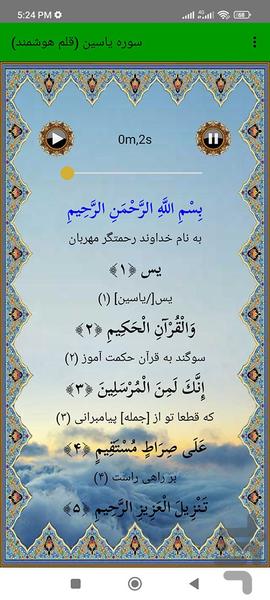 5:24 PM
سوره یاسین (قلم هوشمند)
0m,2s
بِسْمِ اللَّهِ الرَّحْمَنِ الرَّحِيمِ
به نام خداوند رحمتگر مهربان
يس ﴿۱﴾
یس[/یاسین] (۱)
وَالْقُرْآنِ الْحَكِيمِ ﴿۲﴾
سوگند به قرآن حکمت آموز (۲)
إِنَّكَ لَمِنَ الْمُرْسَلِينَ ﴿۳﴾
که قطعا تو از [جمله] پیامبرانی (۳)
عَلَى صِرَاطٍ مُسْتَقِيمٍ ﴿۴﴾
بر راهی راست (۴)
تَنْزِيلَ الْعَزِيزِ الرَّحِيمِ ﴿۵﴾